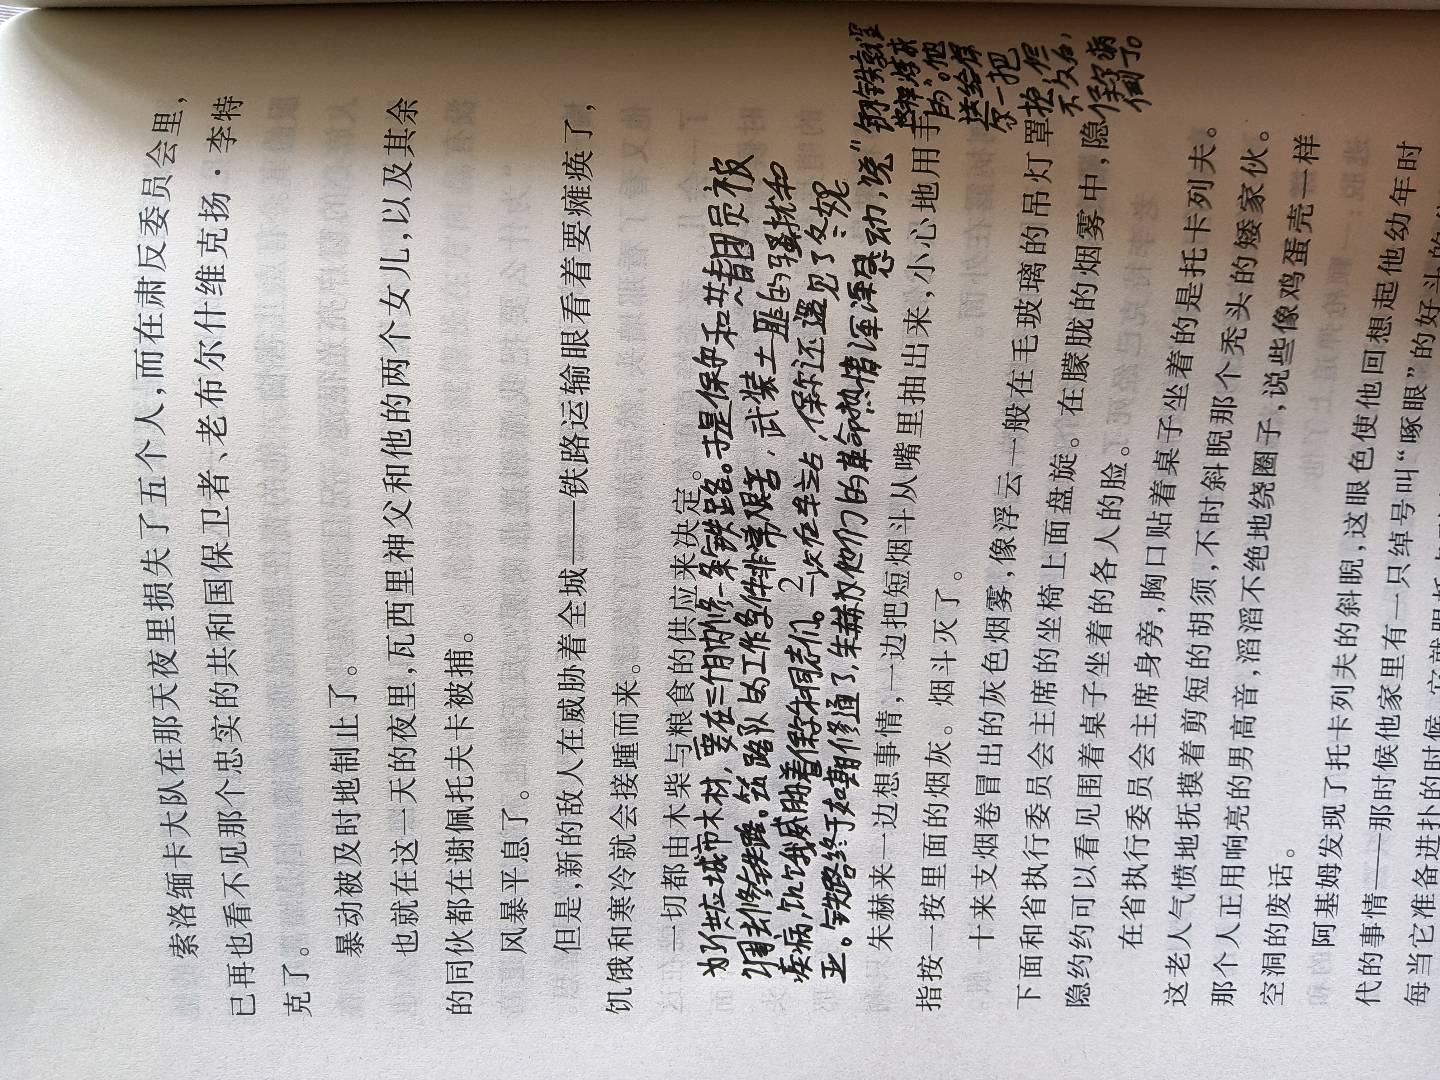 索洛缅卡大队在那天夜里损失了五个人，而在肃反委员会里，
已再也看不见那个忠实的共和国保卫者、老布尔什维克扬·李特
克了。
暴动被及时地制止了。
也就在这一天的夜里，瓦西里神父和他的两个女儿，以及其余
的同伙都在谢佩托夫卡被捕。
风暴平息了。
但是，新的敌人在威胁着全城——铁路运输眼看着要瘫痪了，
饥饿和寒冷就会接踵而来。
一切都由木柴与粮食的供应来决定。
为了供应城市木材，要在三个月内修一条铁路。于是保尔和共青团员被
调去修铁路。筑路队的工作条件非常艰苦，武装土匪的骚扰和
疾病，饥饿威胁着保尔和同志们。一次在车站，保尔还遇见了冬妮
亚。铁路终于如期修通了，朱赫来为他们的革命热情深深感动，说“
钢铁就是
这样炼成
的”。他
送给保
尔一把
枪，但
不久后，
保尔病
倒了。
朱赫来一边想事情，一边把短烟斗从嘴里抽出来，小心地用手
指按一按里面的烟灰。烟斗灭了。
十来支烟卷冒出的灰色烟雾，像浮云一般在毛玻璃的吊灯罩
下面和省执行委员会主席的坐椅上面盘旋。在朦胧的烟雾中，隐
隐约约可以看见围着桌子坐着的各人的脸。
在省执行委员会主席身旁，胸口贴着桌子坐着的是托卡列夫。
这老人气愤地抚摸着剪短的胡须，不时斜睨那个秃头的矮家伙。
那个人正用响亮的男高音，滔滔不绝地绕圈子，说些像鸡蛋壳一样
空洞的废话。
阿基姆发现了托卡列夫的斜睨，这眼色使他回想起他幼年时
代的事情——那时候他家里有一只绰号叫“啄眼”的好斗的
每当它准备进扑的时候，它就